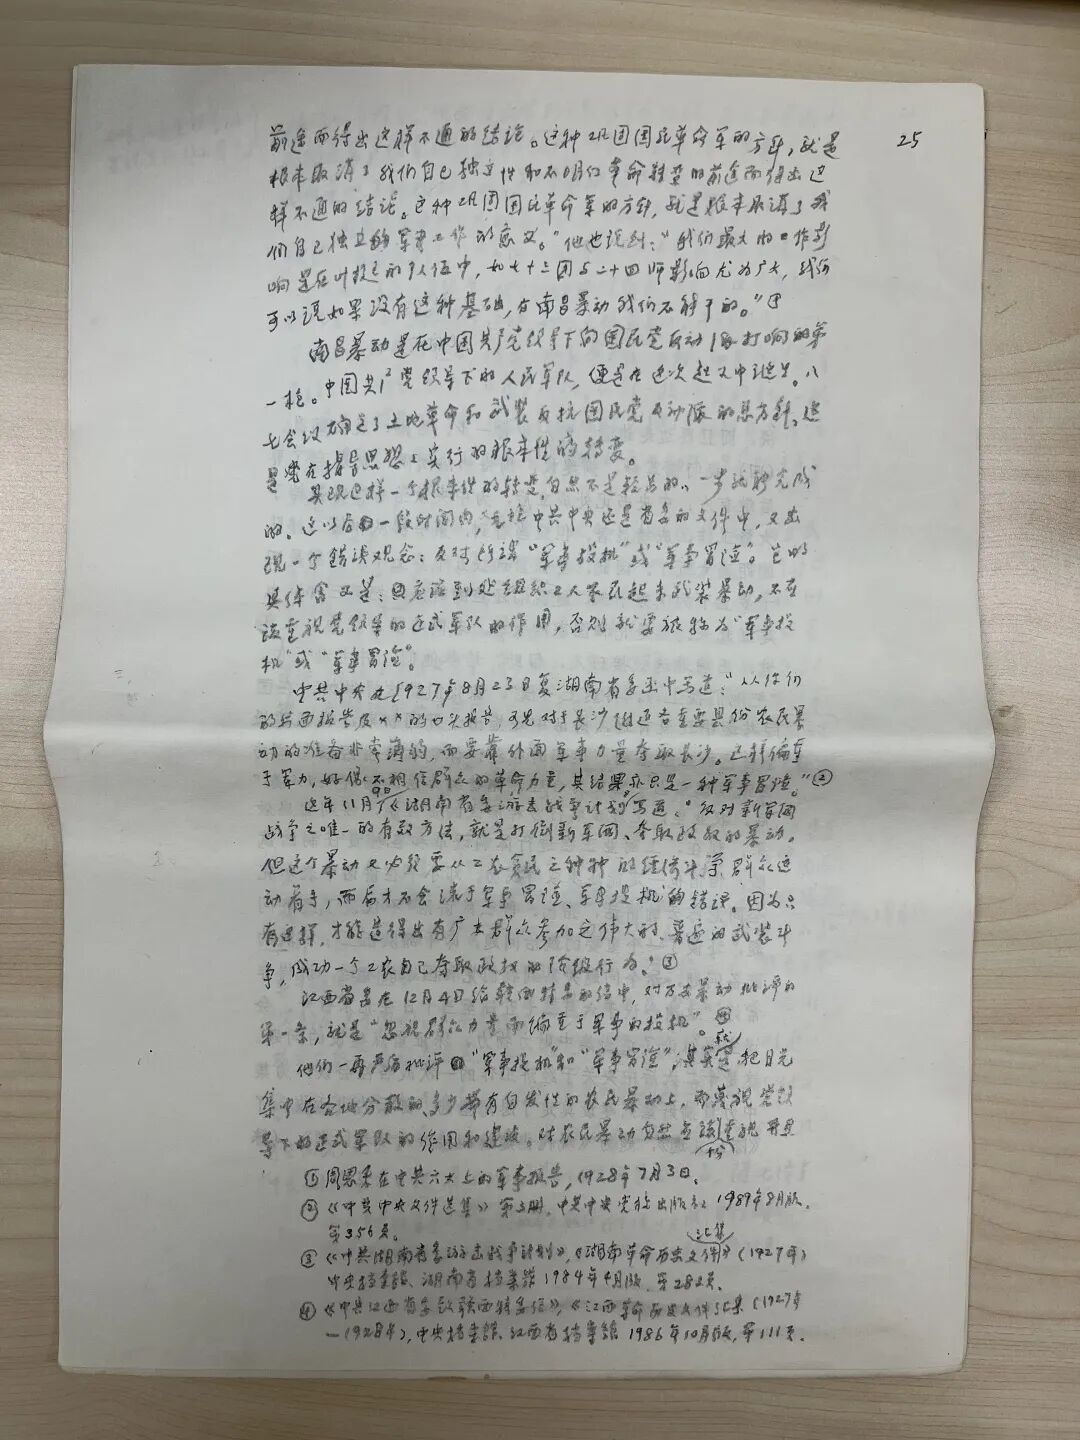 25
前途而得出这样不通的结论。这种巩固国民革命军的方针，就是
根本取消了我们自己独立性和不明了革命转变的前途而得出这
样不通的结论。这种巩固国民革命军的方针，就是根本取消了我
们自己独立的军事工作的意义。”他也说到：“我们最大的工作影
响是在叶挺的队伍中，如七十三团与二十四师影响尤为广大，我们
可以说如果没有这种基础，在南昌暴动我们不能干的。”①
南昌暴动是在中国共产党领导下向国民党反动派打响的第
一枪。中国共产党领导下的人民军队，便是在这次起义中诞生。八
七会议确定了土地革命和武装反抗国民党反动派的总方针。这
是党在指导思想上实行的根本性的转变。
实现这样一个根本性的转变，自然不是轻易的、一步就能完成
的。这以后一段时间内，无论中共中央还是省委的文件中，又出
现一个错误观念：反对所谓“军事投机”或“军事冒险”。它的
具体含义是：只应该到处组织工人农民起来武装暴动，不应
该重视党领导的正式军队的作用，否则就要被称为“军事投
机”或“军事冒险”。
中共中央在1927年8月23日复湖南省委函中写道：“从你们
的书面报告及××的口头报告，可见对于长沙附近各重要县份农民暴
动的准备非常薄弱，而要靠外面军事力量夺取长沙。这样偏重
于军力，好像不相信群众的革命力量，其结果亦只是一种军事冒险。”②
这年11月，《湖南省委游击战争计划》写道：“反对新军阀
战争之唯一的有效方法，就是打倒新军阀、夺取政权的暴动。
但这个暴动又必须要从工农贫民之种种的经济斗争群众运
动着手，而后才不会流于军事冒险、军事投机的错误。因为只
有这样，才能造得出有广大群众参加之伟大的、普遍的武装斗
争，成功一个工农自己夺取政权的阶级行为。”③
江西省委在12月4日给赣西特委的信中，对万安暴动批评的
第一条，就是“忽视群众力量而偏重于军事的投机”。④
他们一再严厉批评“军事投机”和“军事冒险”，其实就是把目光
集中在各地分散的、多少带有自发性的农民暴动上，而蔑视党领
导下的正式军队的作用和建设。对农民暴动自然应该十分重视，并且
①周恩来在中共六大上的军事报告，1928年7月3日。
②《中共中央文件选集》第3册，中共中央党校出版社1989年8月版，
第356页。
③《中共湖南省委游击战争计划》，《湖南革命历史文件汇集》（1927年）
中央档案馆、湖南省档案馆1984年4月版，第282页。
④《中共江西省委致赣西特委信》，《江西革命历史文件汇集（1927年
—1928年），中央档案馆、江西省档案馆1986年10月版，第111页。